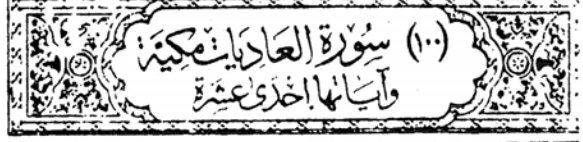 (١٠٠) سُورَة العَاديَات مَكيَّة
وَآيَاتهَا احْدَى عَشرَة